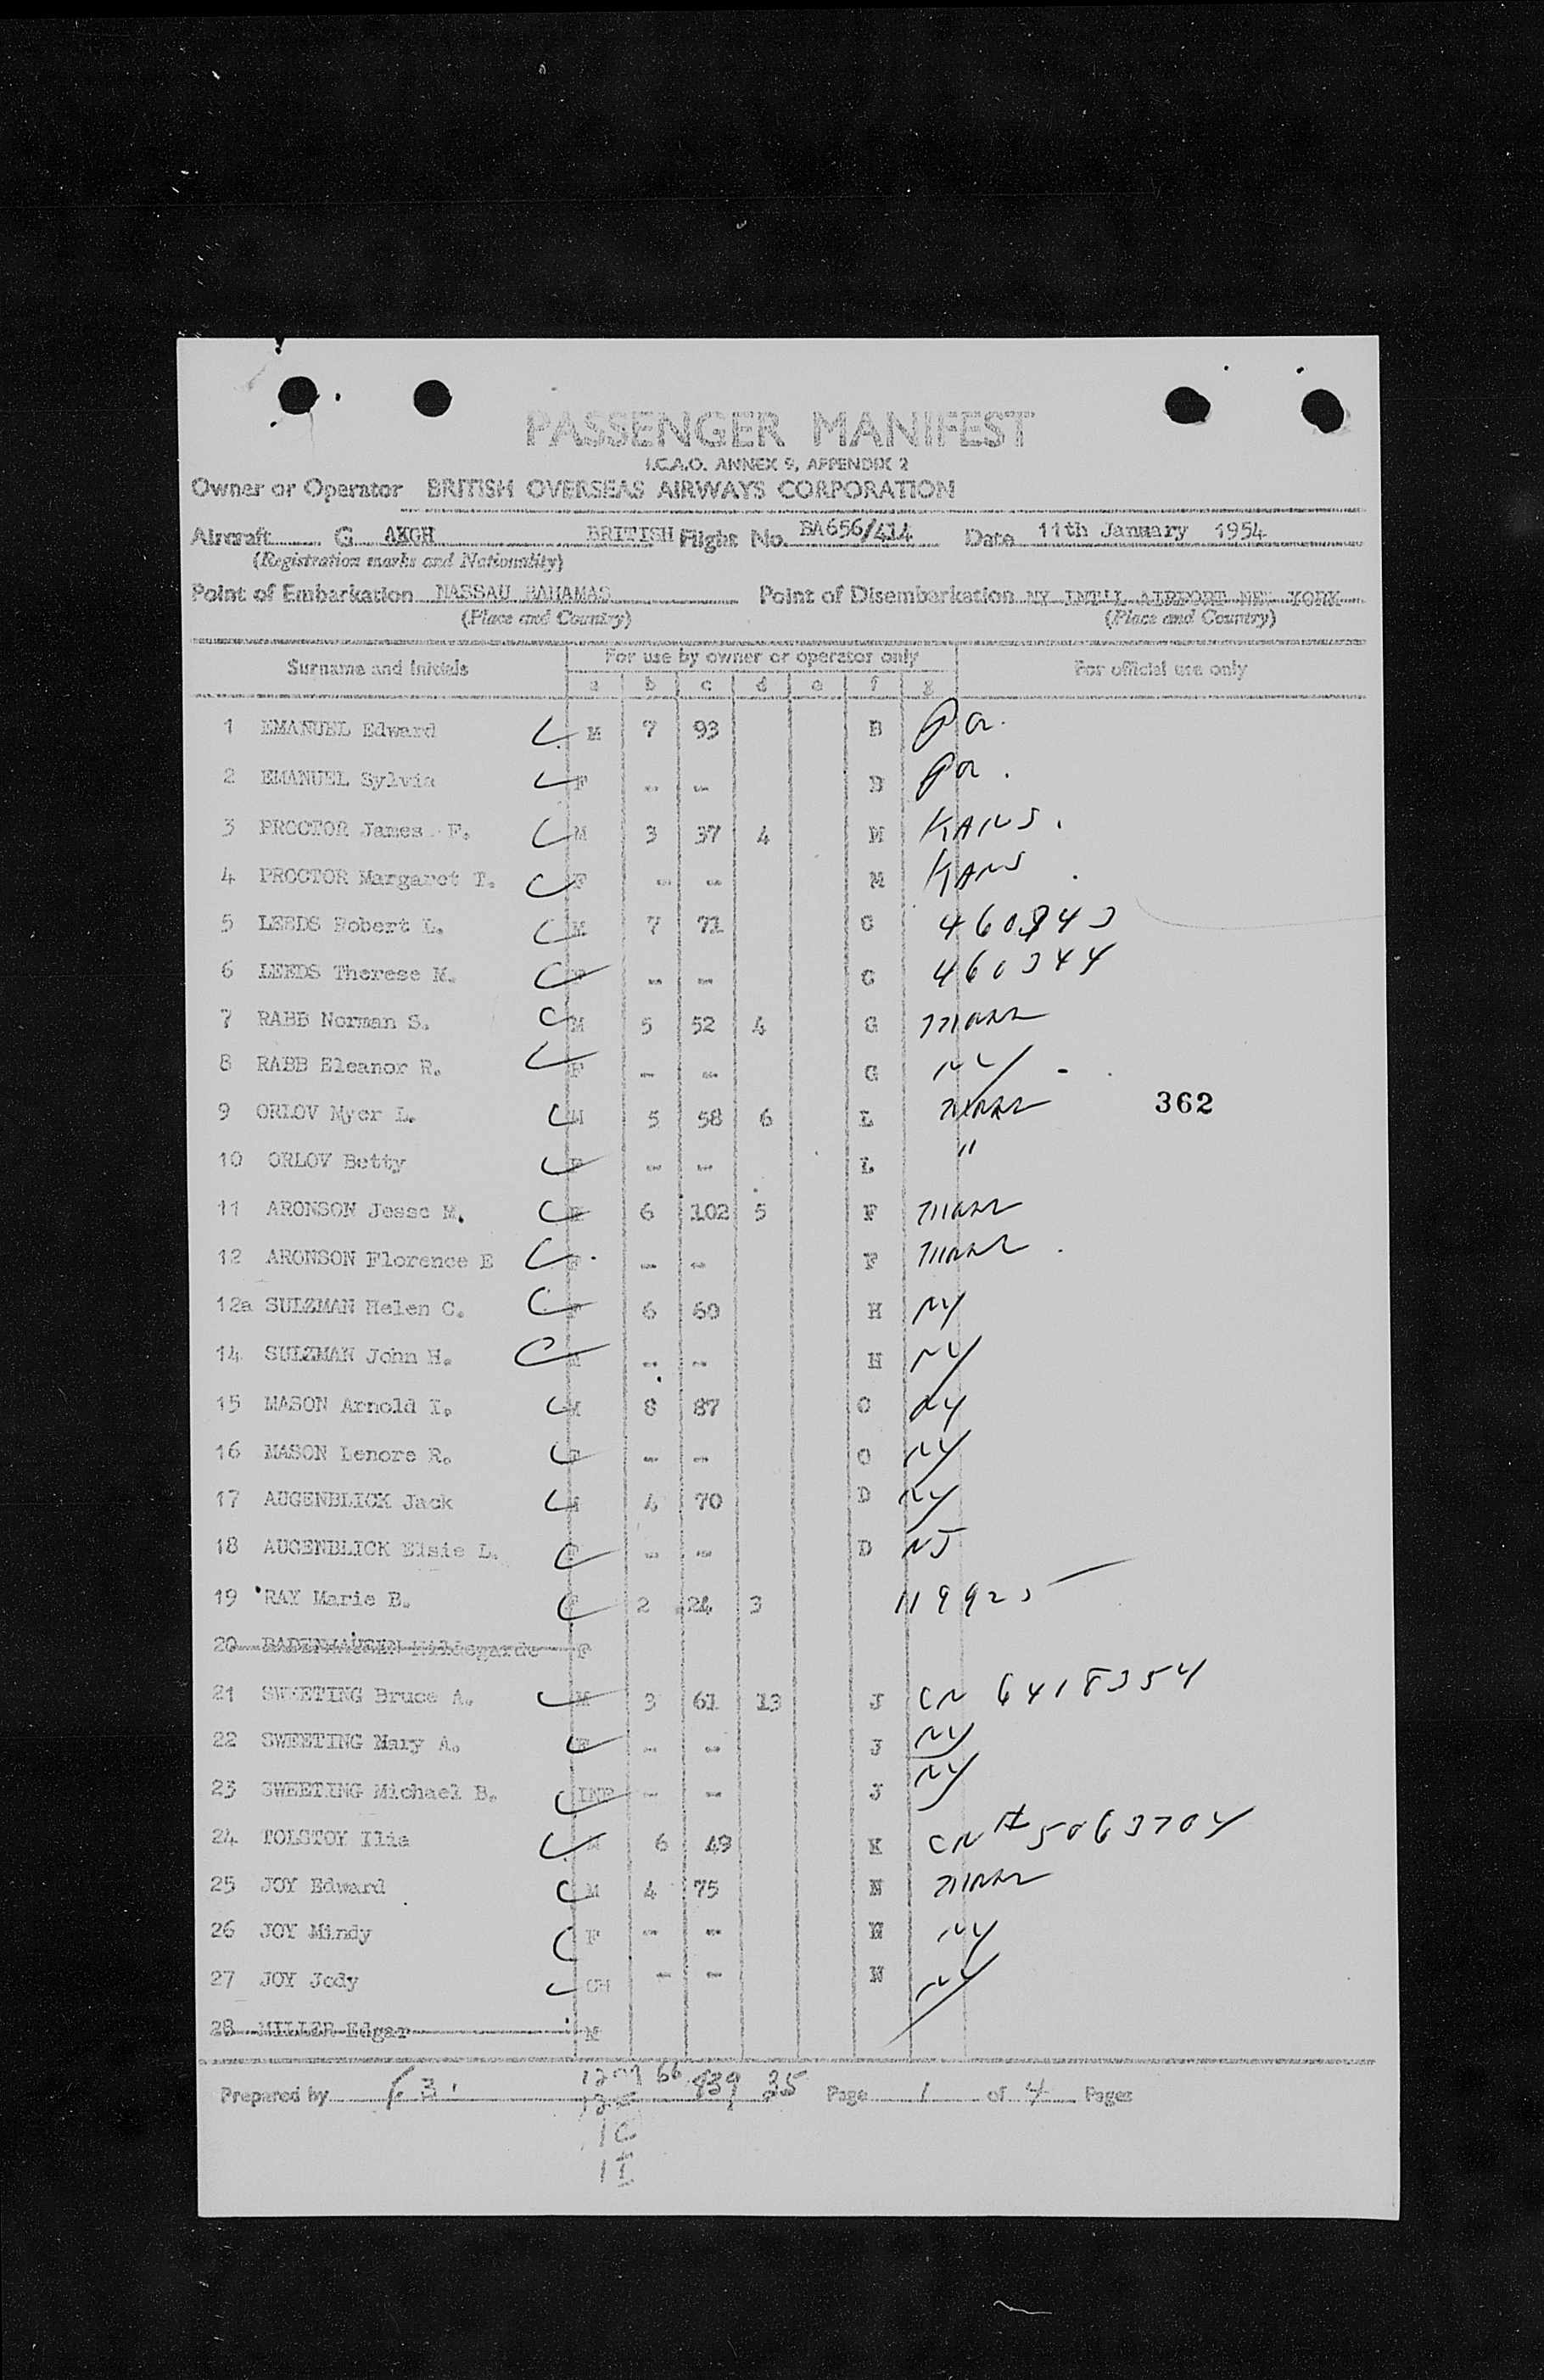 PASSENGER MANIFEST
I.C.A.O. ANNEX 9, APPENDIX 2
Owner or Operator BRITISH OVERSEAS AIRWAYS CORPORATION
Aircraft G AKGH BRITISH Flight No. BA656/414 Date 11th January 1954
(Registration marks and Nationality)
Point of Embarkation NASSAU BAHAMAS Point of Disembarkation NY INT'L AIRPORT NEW YORK
(Place and Country) (Place and Country)
Surname and Initials For use by owner or operator only For official use only
a b c d e f g
1 EMANUEL Edward C M 7 93 B Pa.
2 EMANUEL Sylvia C F -- -- B Pa.
3 PROCTOR James F. C M 3 37 4 M KANS.
4 PROCTOR Margaret T. C F -- -- M KANS
5 LEEDS Robert L. C M 7 71 C 460343
6 LEEDS Therese M. C F -- -- C 460344
7 RABB Norman S. C M 5 52 4 G Mass
8 RABB Eleanor R. C F -- -- G NY
9 ORLOV Myer L. C M 5 58 6 L Mass 362
10 ORLOV Betty C F -- -- L "
11 ARONSON Jesse M. C M 6 102 5 F Mass
12 ARONSON Florence E C F -- -- F Mass
12a SULZMAN Helen C. C F 6 60 H NY
14 SULZMAN John H. C M -- -- H NY
15 MASON Arnold I. C M 8 87 O NY
16 MASON Lenore R. C F -- -- O NY
17 AUGENBLICK Jack C M 4 70 D NY
18 AUGENBLICK Elsie L. C F -- -- D NJ
19 RAY Marie B. C F 2 24 3 119925
20 F
21 SWEETING Bruce A. C M 3 61 13 J CN 6418354
22 SWEETING Mary A. C F -- -- J NY
23 SWEETING Michael B. C INF -- -- J NY
24 TOLSTOY Ilia C M 6 49 K CN # 5063704
25 JOY Edward C M 4 75 N Mass
26 JOY Mindy C F -- -- N NY
27 JOY Jody C CH -- -- N NY
28 MILLER Edgar M
Prepared by 66 939 35 Page 1 of 4 Pages
1C
1I